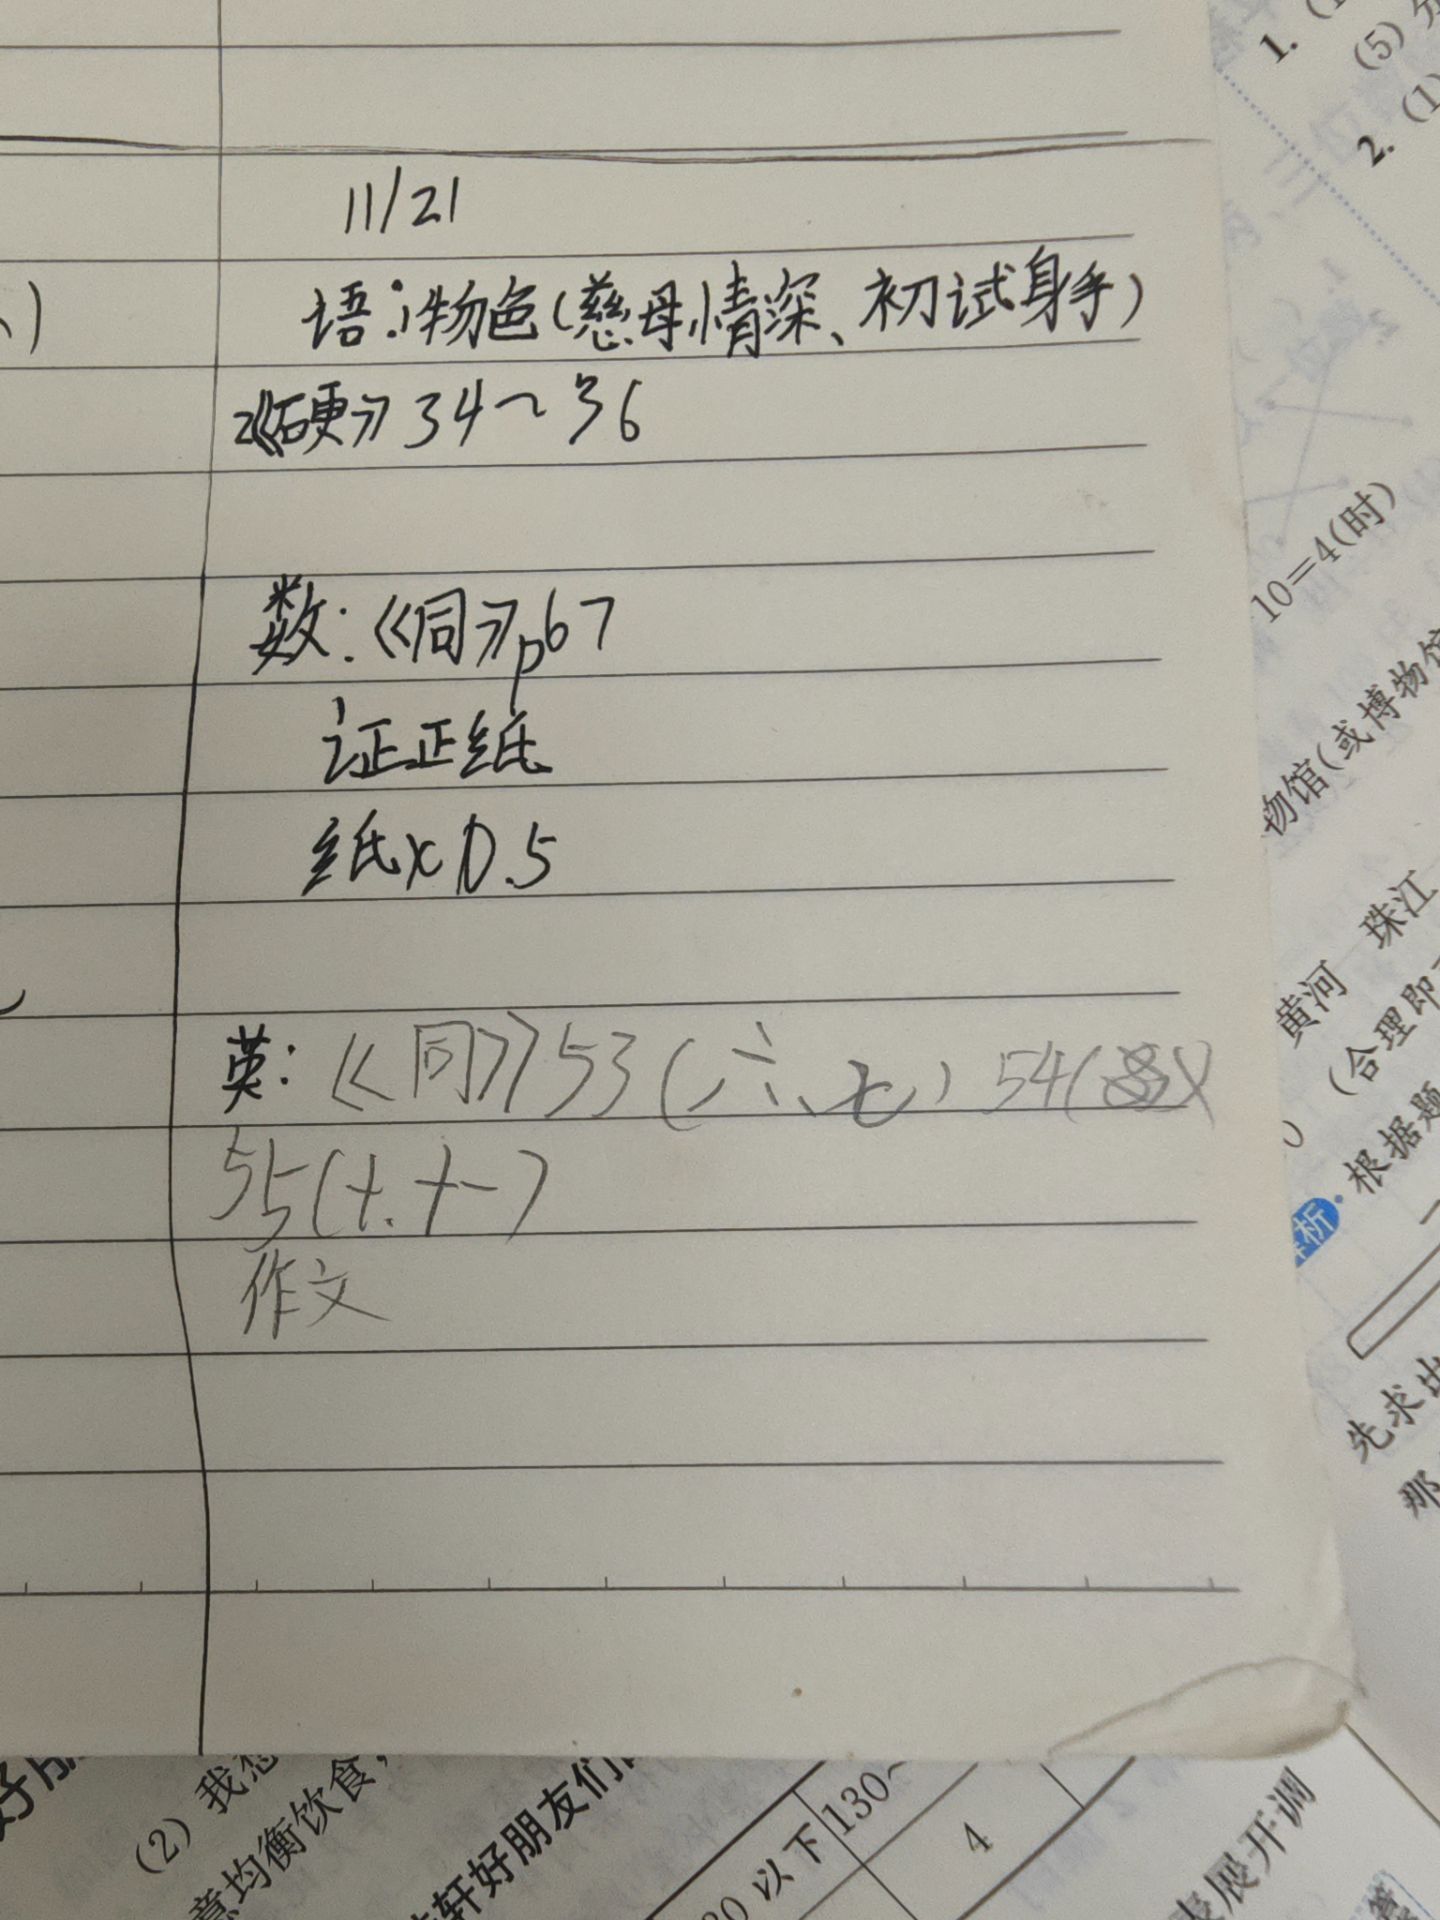 11/21
语:物色(慈母情深、初试身手)
《硬》34~36
数:《同》p67
证正纸
纸×0.5
英:《同》53(六、七)54(
55(十.十一)
作文
1.
(5)
2. (1)
10=4(时)
物馆(或博物馆
黄河 珠江
(合理即
根据题
析
先求出
那
(2)我
意均衡饮食,
轩好朋友们
以下 130~
4
展开调